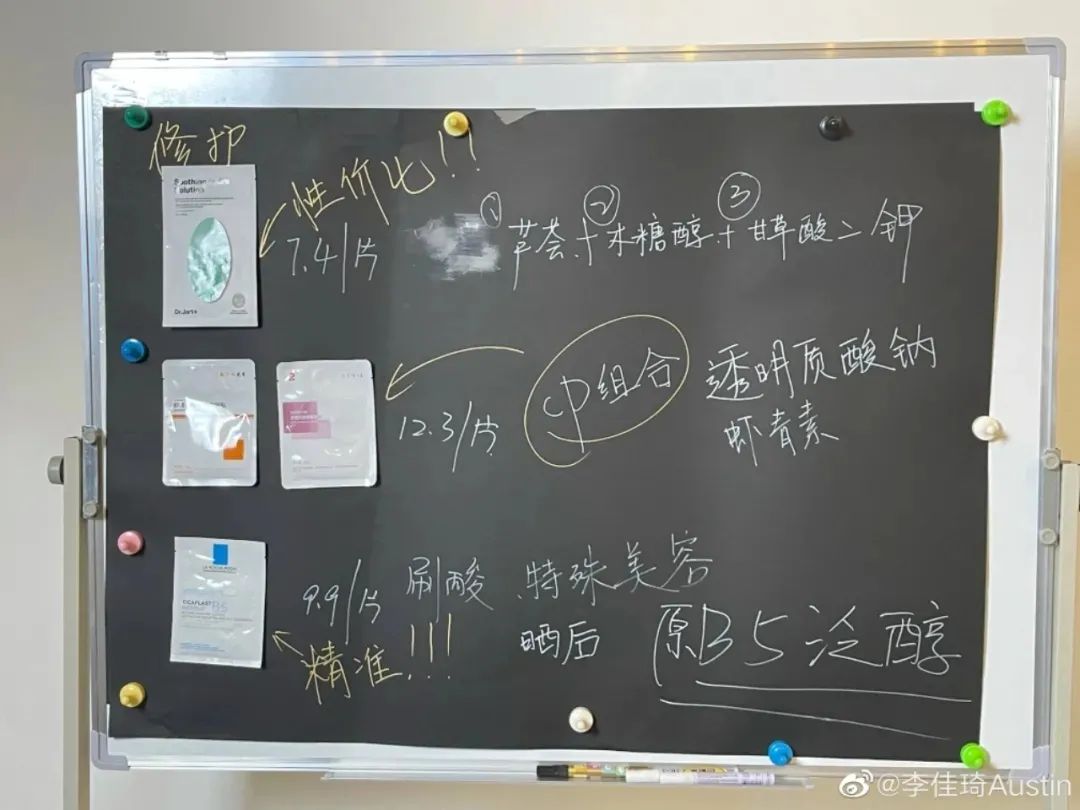 修护
性价比!!
7.4/片
① ② ③
芦荟+木糖醇+甘草酸二钾
Soothing
Solution
Dr.Jart+
12.3/片
CP组合
透明质酸钠
虾青素
LA ROCHE-POSAY
CICAPLAST
B5
9.9/片 刷酸、特殊美容
晒后
精准!!!
原B5泛醇
@李佳琦Austin